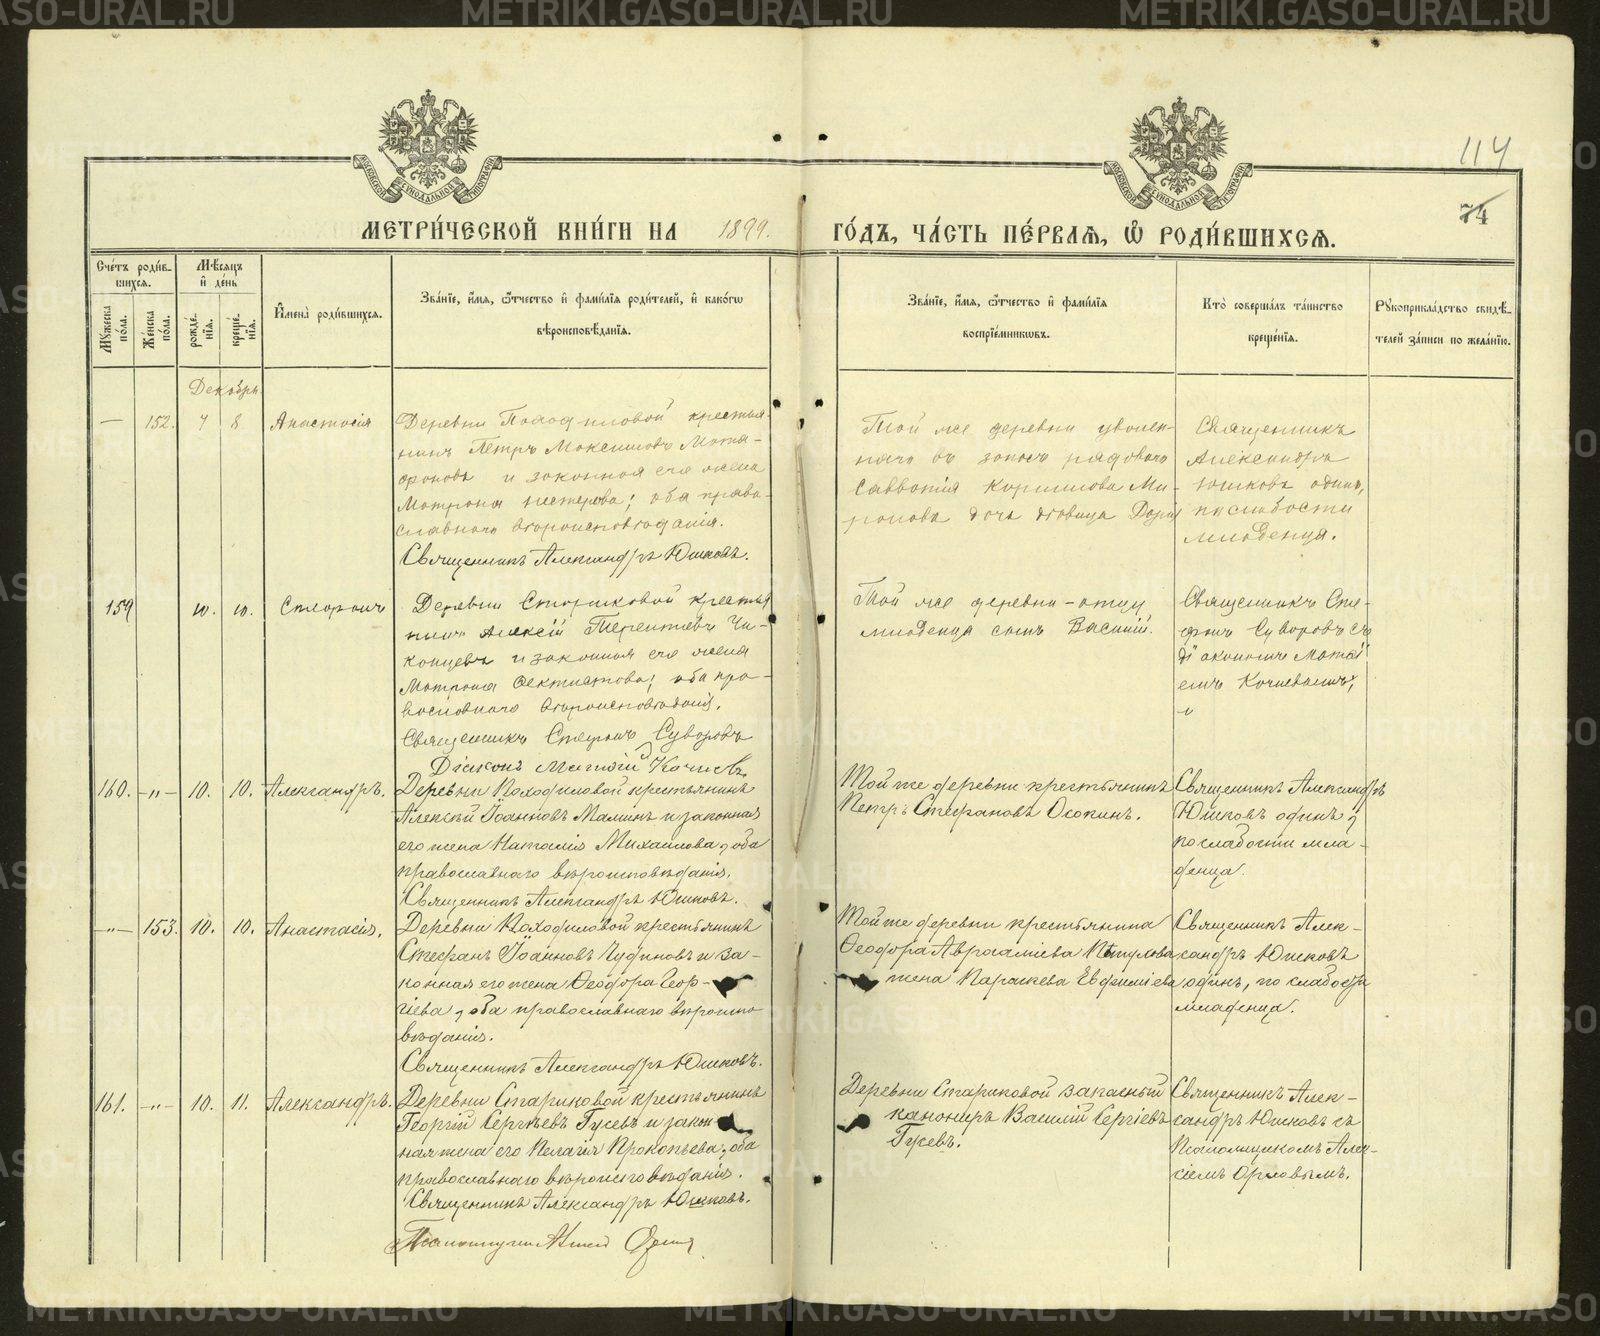 METRIKI.GASO-URAL.RU
114
74
МЕТРИ́ЧЕСКОЙ КНИ́ГИ НА 1899. ГО́ДЪ, ЧА́СТЬ ПЕ́РВАЯ, Ѡ РОДИ́ВШИХСЯ.
Сче́тъ роди́в-
шихся.
Мѣсяцъ
и҆ де́нь
Мꙋжеска
по́ла.
Же́нска
по́ла.
рожде́-
нїѧ.
креще́-
нїѧ.
И҆мена̀ роди́вшихсѧ.
Зва́нїе, и҆́мѧ, ѻ҆́тчество и҆ фами́лїѧ роди́телей, и҆ како́гѡ
вѣроисповѣ́данїѧ.
Зва́нїе, и҆́мѧ, ѻ҆́тчество и҆ фами́лїѧ
воспрїе́мникѡвъ.
Кто̀ соверша́лъ та́инство
креще́нїѧ.
Рꙋкоприкла́дство свидѣ́-
телей за́писи по жела́нїю.
Декабрь
— 152. 7 8 Анастасія
Деревни Походиловой крестья-
нинъ Петръ Максимовъ Мата-
фоновъ и законная его жена
Матрона Нестерова; оба право-
славнаго вѣроисповѣданія.
Священникъ Александръ Юшковъ.
Той же деревни уволен-
наго въ запасъ рядоваго
Савватія Корнилова Ми-
ронова дочь дѣвица Дарія
Священникъ
Александръ
Юшковъ одинъ,
по слабости
младенца.
159 10. 10.
Деревни Стариковой крестья
нинъ Алексій Терентьевъ Чи-
канцевъ и законная его жена
Матрона Феоктистова; оба пра-
вославнаго вѣроисповѣданія.
Священникъ Стефанъ Суворовъ
Діаконъ Матѳій
Той же деревни – отца
младенца сынъ Василій.
Священникъ Сте-
фанъ Суворовъ съ
діакономъ Матѳі
емъ
160. –„– 10. 10. Александръ.
Деревни Походиловой крестьянинъ
Алексѣй Іоанновъ Малинъ и законная
его жена Наталія Михаилова, оба
православнаго вѣроисповѣданія.
Священникъ Александръ Юшковъ.
Той же деревни крестьянинъ
Петръ Стефановъ Осокинъ.
Священникъ Александръ
Юшковъ одинъ,
по слабости мла-
денца.
–„– 153. 10. 10. Анастасія.
Деревни Походиловой крестьянинъ
Стефанъ Іоанновъ Чудиновъ и за-
конная его жена Ѳеодора Геор-
гіева, оба православнаго вѣроиспо-
вѣданія.
Священникъ Александръ Юшковъ.
Той же деревни крестьянина
Ѳеодора Авраамиева
жена Параскева Евфиміева
Священникъ Алек-
сандръ Юшковъ
одинъ, по слабости
младенца.
161. –„– 10. 11. Александръ.
Деревни Стариковой крестьянинъ
Георгій Сергѣевъ Гусевъ и закон
ная жена его Пелагія Прокопьева, оба
православнаго вѣроисповѣданія.
Священникъ Александръ Юшковъ.
Псаломщикъ Алексій Орловъ
Деревни Стариковой запасный
канониръ Василій Сергіевъ
Гусевъ.
Священникъ Алек-
сандръ Юшковъ съ
Псаломщикомъ Алек-
сіемъ Орловымъ.